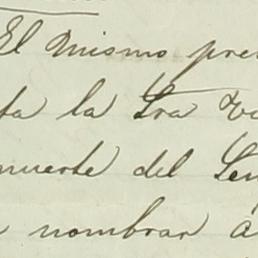 El mismo pre
ta la Sra
muerte del Señ
nombrar á